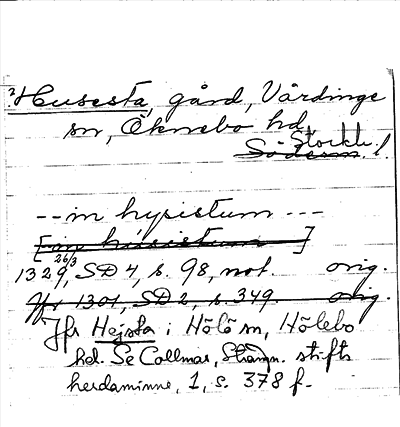 ? Husesta, gård, Vårdinge
sn, Öknebo hd,
Stockh.
Söderm. l.
-- in hysistum ---
[in husistum]
1329 26/3, SD 4, s. 98, not. orig.
Jfr 1301, SD 2, s. 349. orig.
Jfr Hejsta i Hölö sn, Hölebo
hd. Se Collmar, Strängn. stifts
herdaminne, 1, s. 378 f.